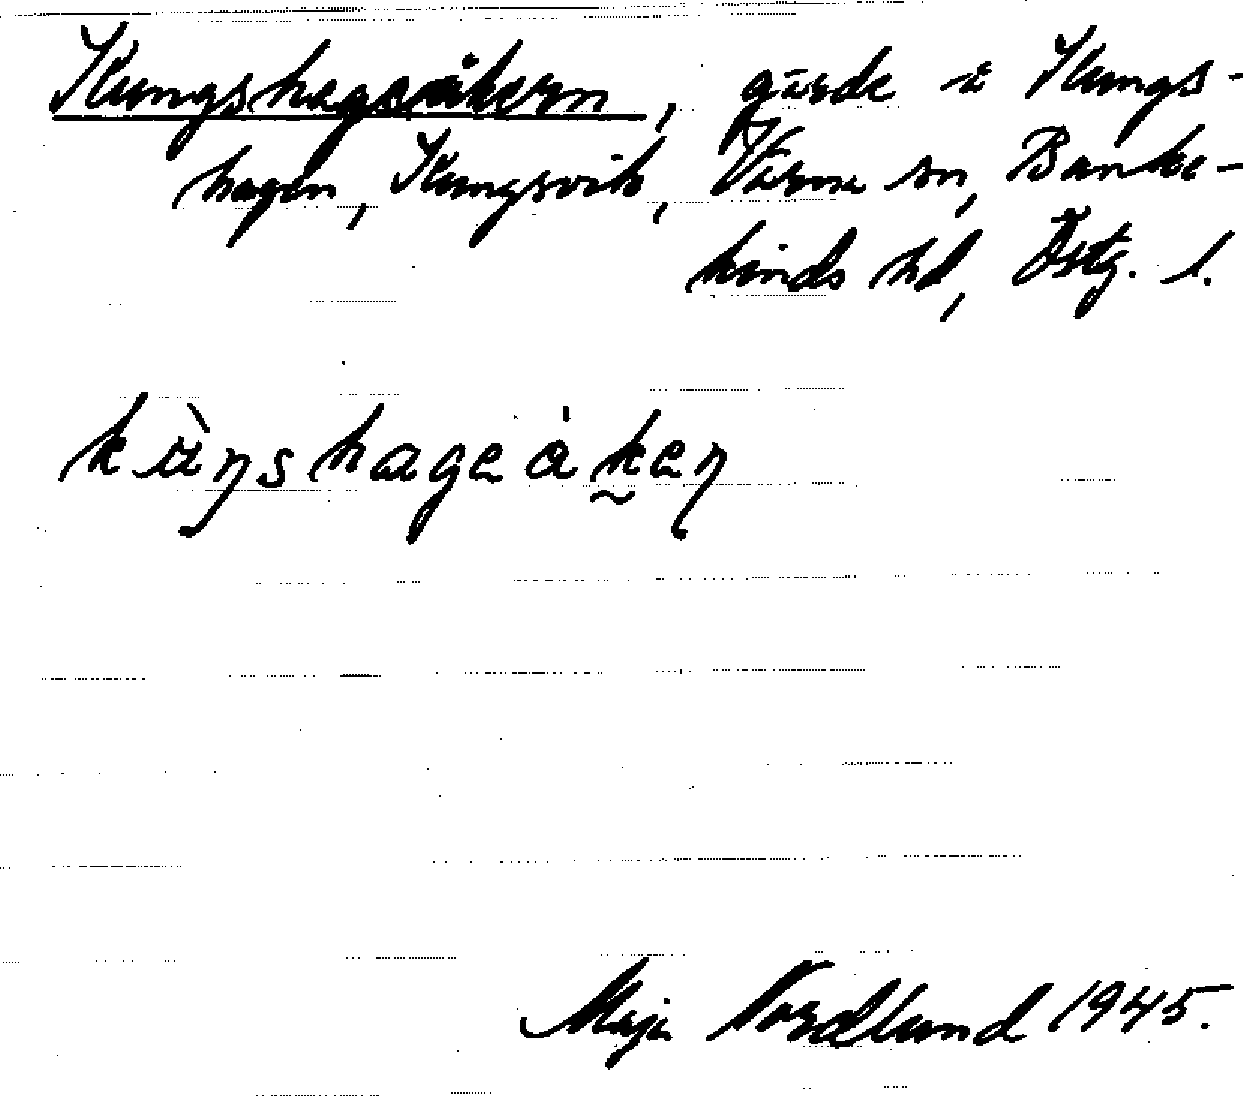 Kungshagsåkern, gärde i Kungs-
hagen, Kungsvik, Värna sn, Banke-
kinds hd, Östg. l.
kùŋshageåkeŋ
Maja Nordlund 1945.